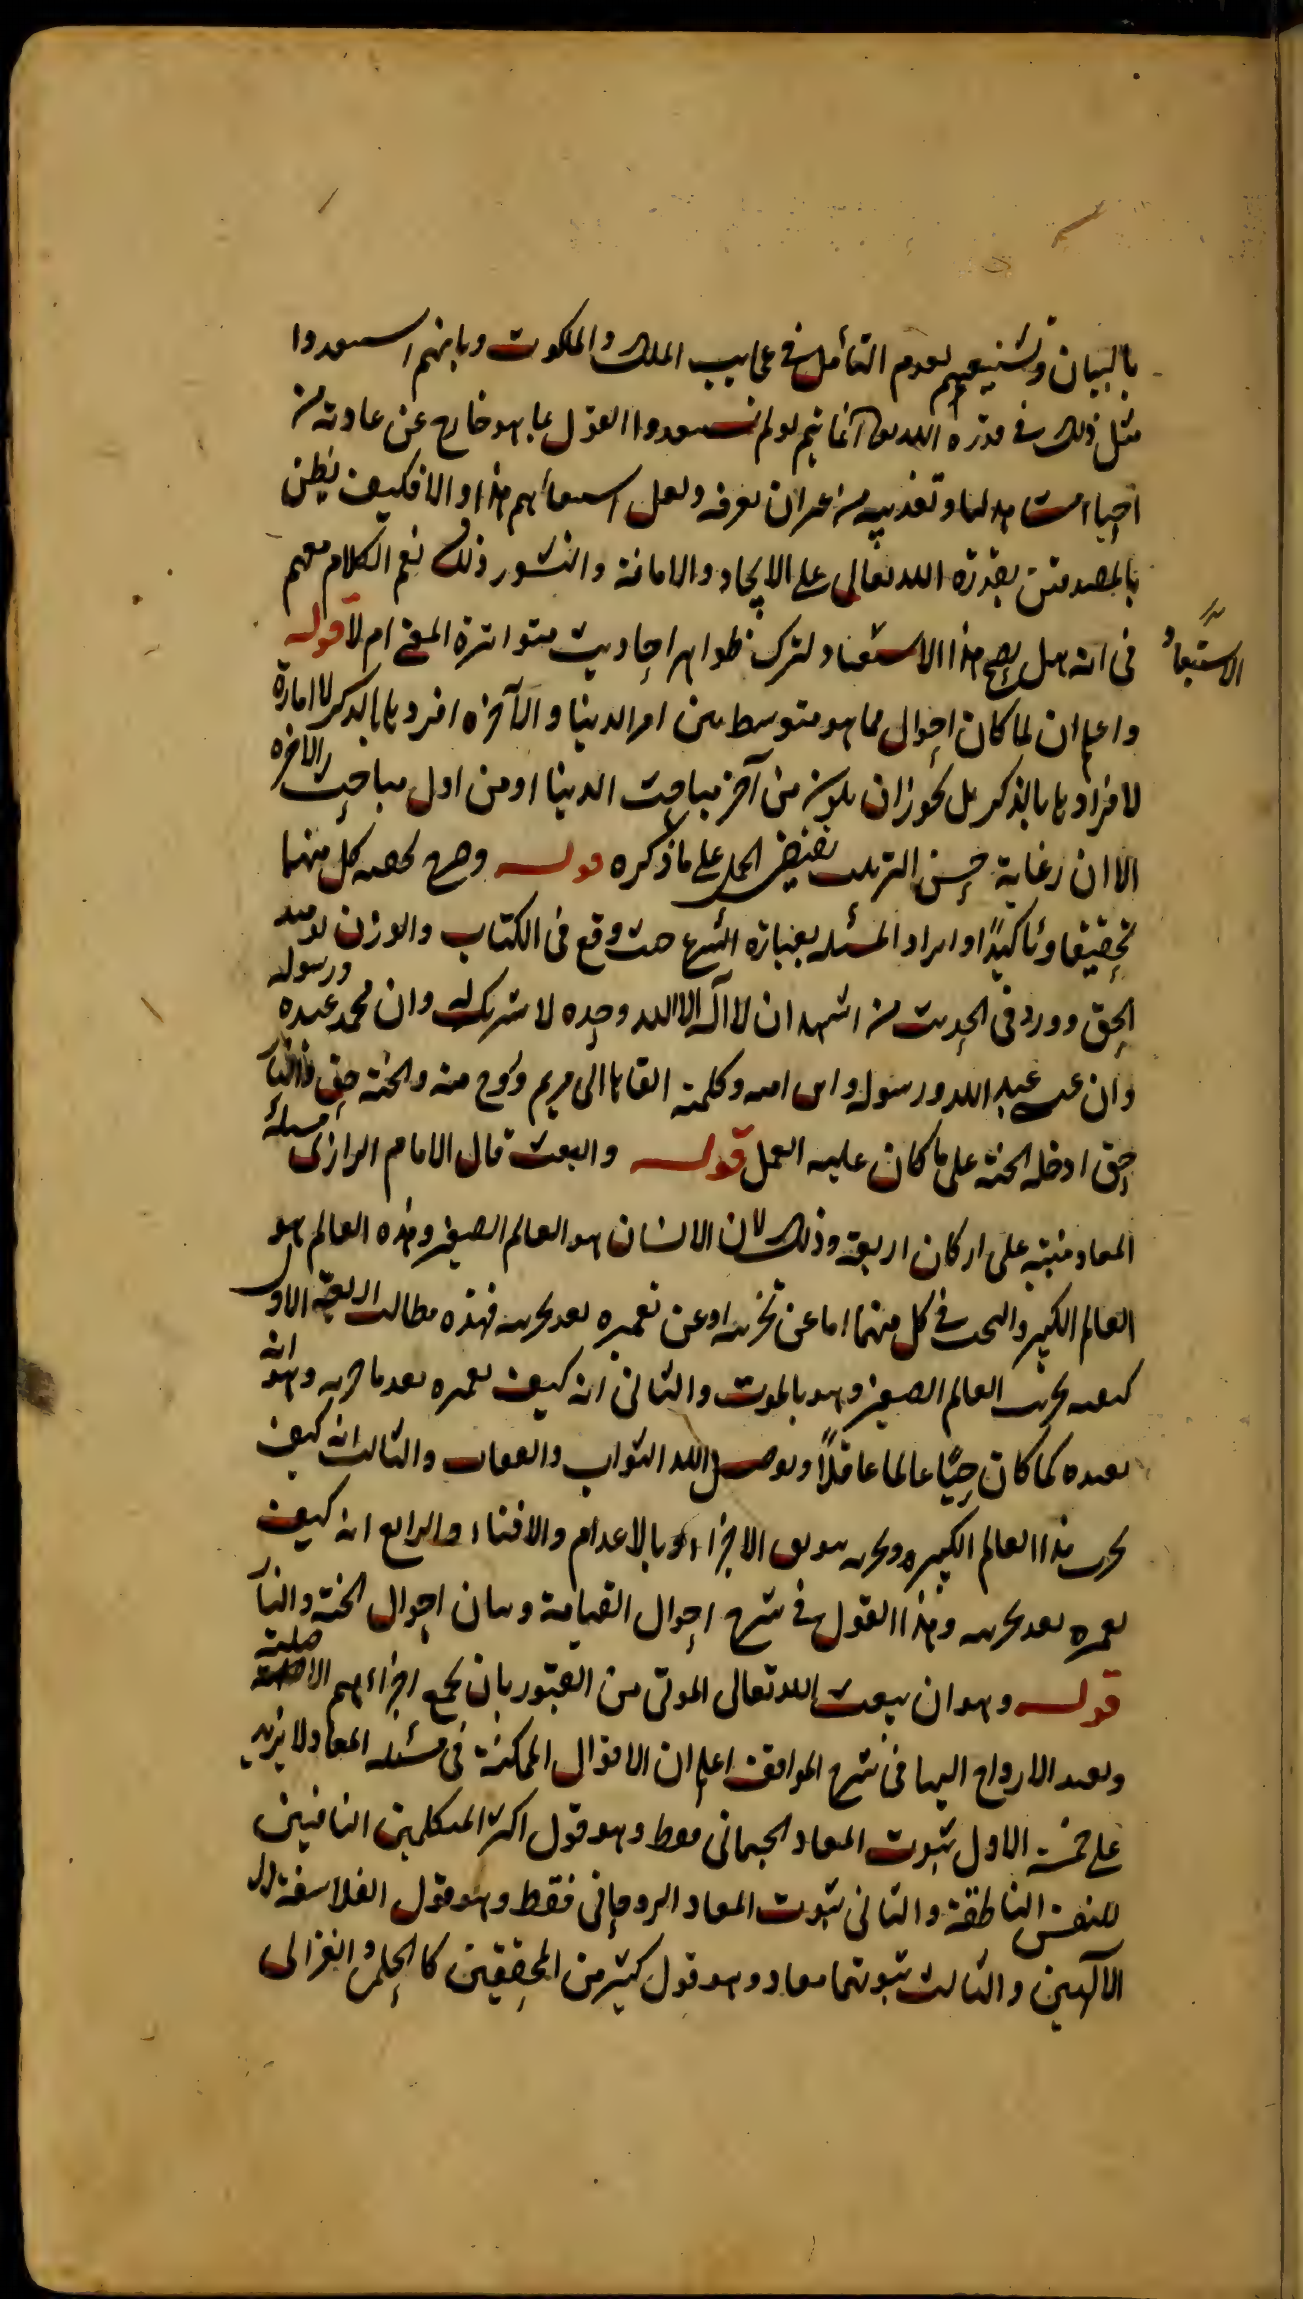 بالبيان وتشنيعهم لعدم التأمل في عجايب الملك والملكوت وبانهم استبعدوا
مثل ذلك في قدرة الله تعالى فانهم لو لم يستبعدوا القول بما هو خارج عن عادته من
احياء وتعذيبه من غير ان نعرفه ولعل هذا والا فكيف يظن
بالمصدقين بقدرة الله تعالى على الايجاد والاماتة والنشور ذلك نعم الكلام معهم
في انه هل يصح هذا الاستبعاد لترك ظواهر احاديث متواترة المعنى ام لا قوله
الاستبعاد
واعلم ان لما كان احوال مما هو متوسط بين امر الدنيا والآخرة افردها بالذكر لا امارة
لافرادها بالذكر بل يجوز ان يكون من آخر مباحث الدنيا او من اول مباحث الاخرة
الا ان رعاية حسن الترتيب تقتضي الحمل على ما ذكره قوله وصرح بحقية كل منهما
تحقيقا وتأكيدًا او ايراد المسئلة بعبارة الشرع حيث وقع في الكتاب والوزن يومئذ
الحق وورد في الحديث من اشهد ان لا آله الا الله وحده لا شريك له وان محمد عبده ورسوله
وان عيسى عبد الله ورسوله وابن امته وكلمته القاها الى مريم وروح منه والجنة حق والنار
حق ادخله الجنة على ما كان عليه العمل قوله والبعث قال الامام الرازي مسئلة
المعاد مبنية على اركان اربعة وذلك لان الانسان هو العالم الصغير وهذه العالم هو
العالم الكبير والبحث في كل منهما اما عن تخريبه او عن تعميره بعد تخريبه فهذه مطالب اربعة الاول
كيفية تخريب العالم الصغير وهو بالموت والثاني انه كيف يعمره بعد ما خربه وهو انه
يعيده كما كان حيًّا عالما عاقلاً ويوصل الله الثواب والعقاب والثالث انه كيف
يخرب هذا العالم الكبير ويخربه بتفريق الاجزاء او بالاعدام والافناء والرابع انه كيف
يعمره بعد تخريبه وهذا القول في شرح احوال القيامة وبيان احوال الجنة والنار
قوله وهو ان يبعث الله تعالى الموتى من القبور بان يجمع اجزاءهم الاصلية
ويعيد الارواح اليها في شرح المواقف اعلم ان الاقوال الممكنة في مسئلة المعاد لا يزيد
على خمسة الاول ثبوت المعاد الجسماني فقط وهو قول اكثر المتكلمين النافين
للنفس الناطقة والثاني ثبوت المعاد الروحاني فقط وهو قول الفلاسفة
الآلهين والثالث ثبوتهما معا وهو قول كثير من المحققين كالحليمي والغزالي